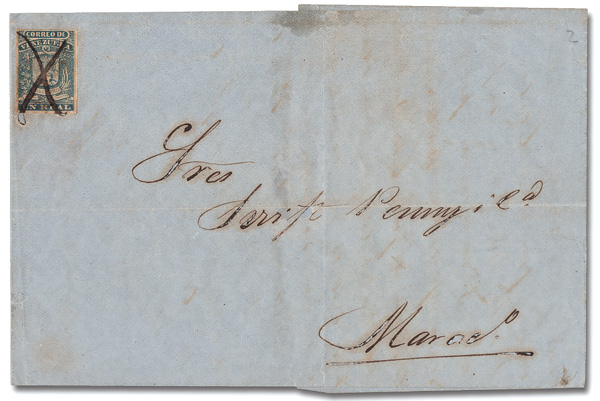 CORREO DE
VENEZUELA
UN REAL
2
Sres
Penny i Cª
Maracº